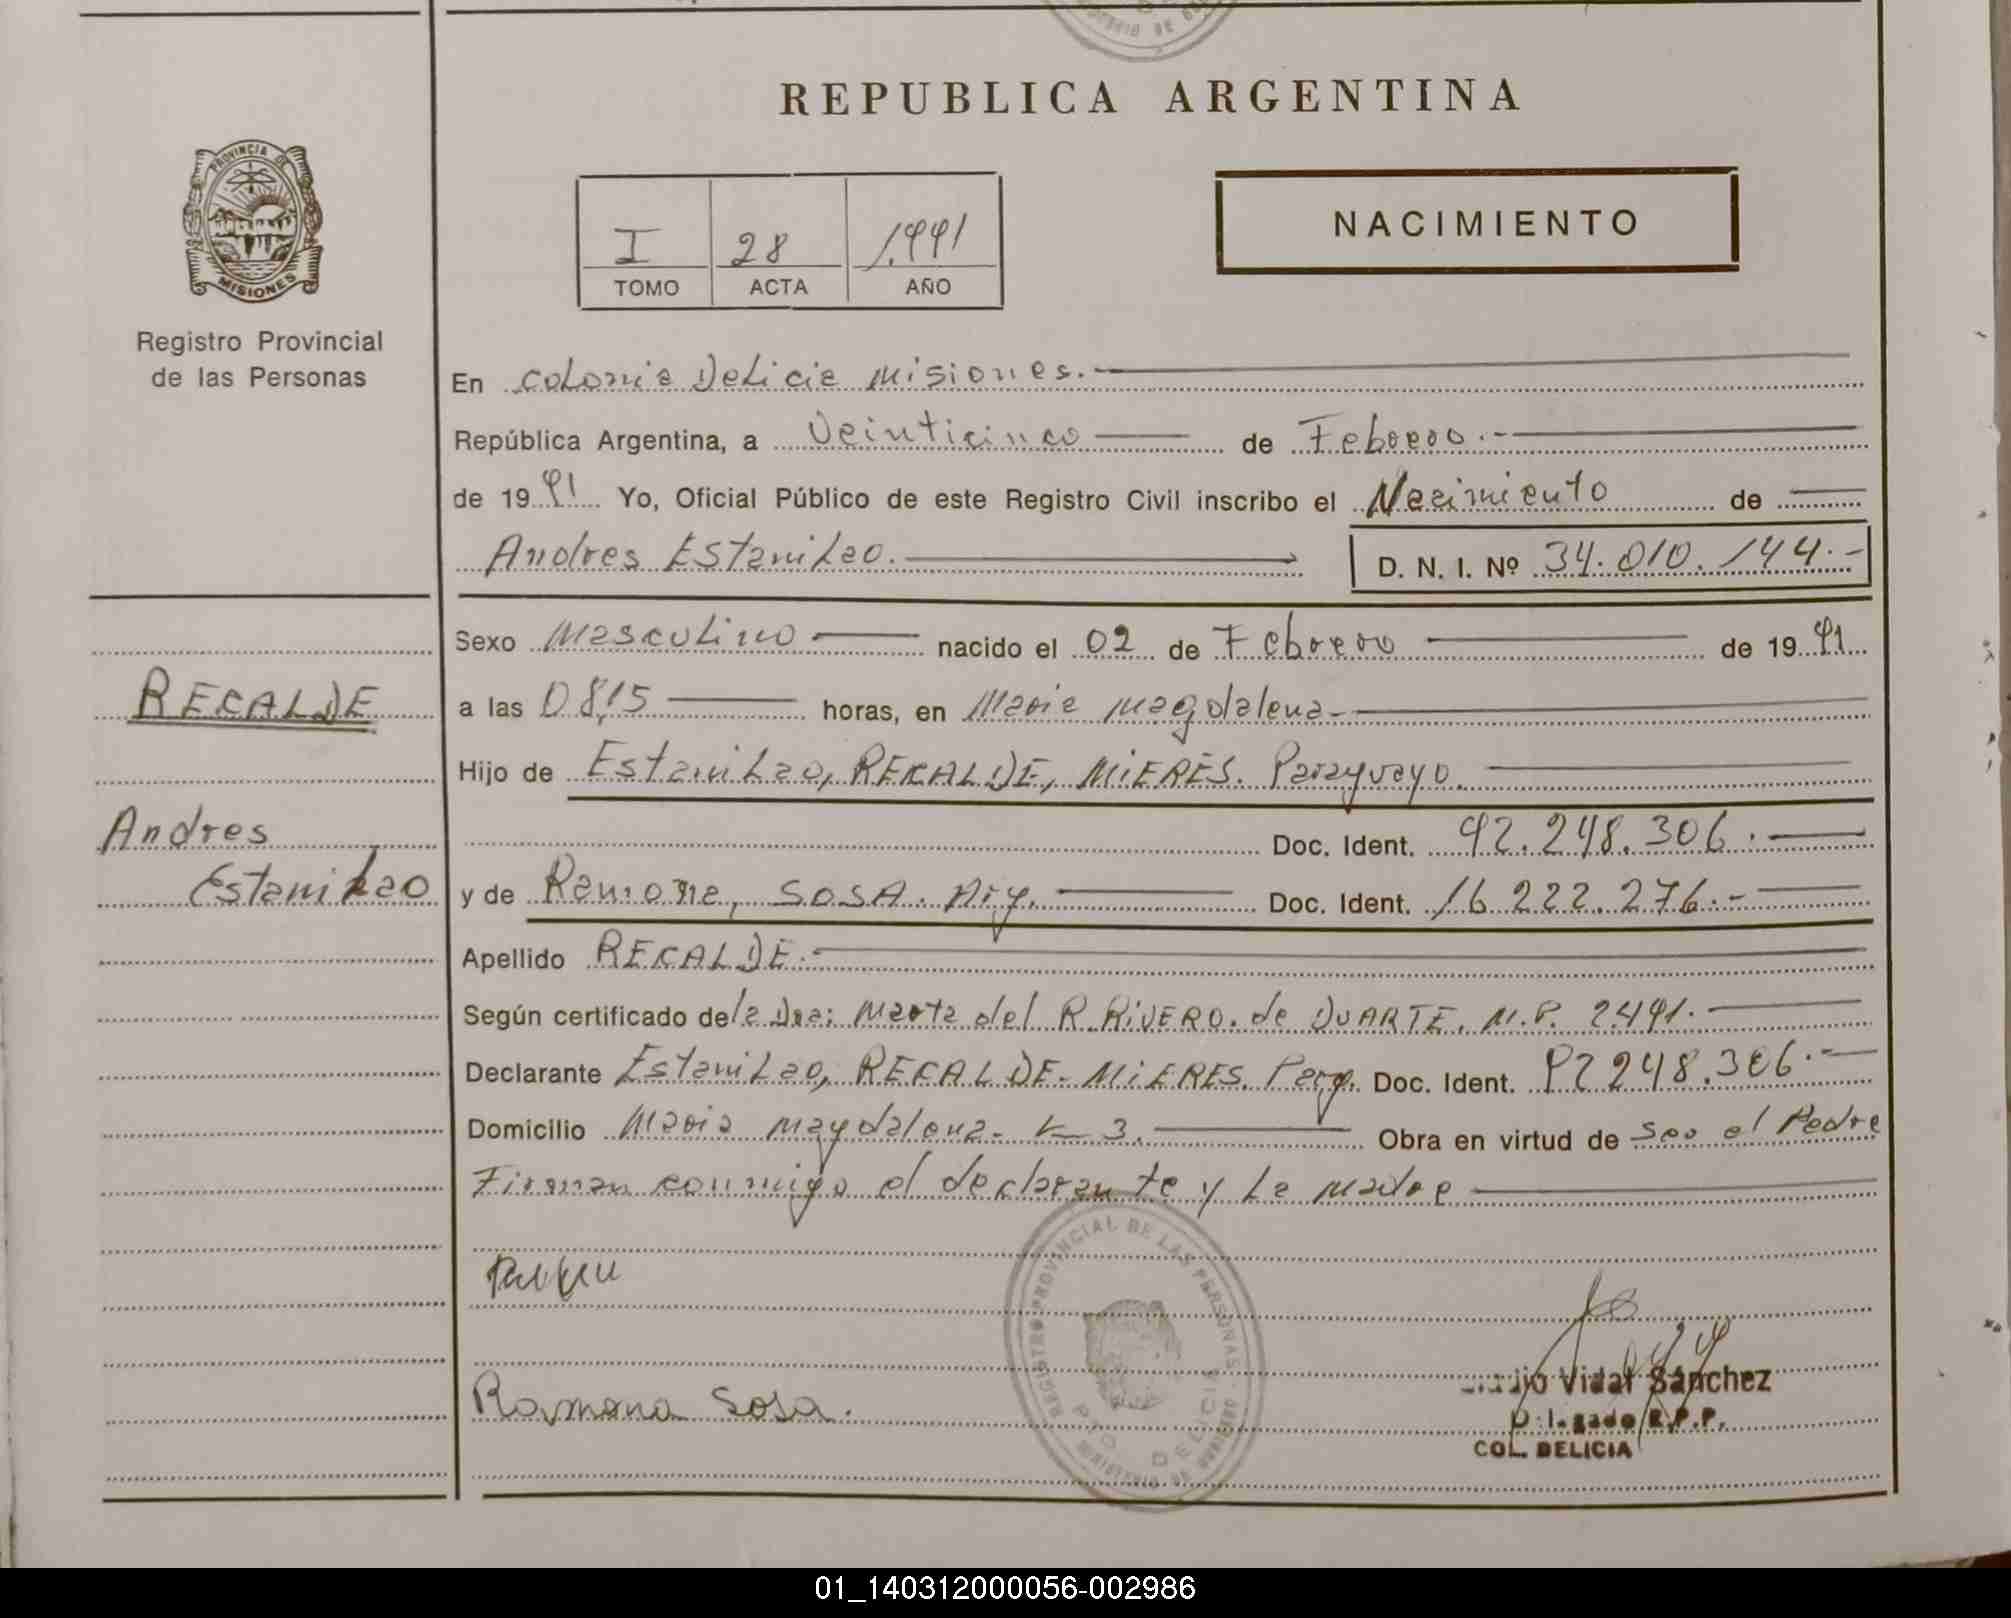 REPUBLICA ARGENTINA
PROVINCIA DE
MISIONES
Registro Provincial
de las Personas
I 28 1.991
TOMO ACTA AÑO
NACIMIENTO
En Colonia Delicia Misiones.
República Argentina, a Veinticinco de Febrero.-
de 19 91 Yo, Oficial Público de este Registro Civil inscribo el Nacimiento de
Andres Estanilao. D. N. I. Nº 34.010.144.-
Sexo Masculino nacido el 02 de Febrero de 19 91
RECALDE
a las 08,15 horas, en Maria Magdalena-
Hijo de Estanilao, RECALDE, MIERES. Paraguayo.
Andres
Doc. Ident. 92.248.306.
Estanilao
y de Ramona, SOSA. Doc. Ident. 16.222.276.-
Apellido RECALDE.-
Según certificado de la Dra; Marta del R. RIVERO. de DUARTE. M.P. 2.491.
Declarante Estanilao, RECALDE- MIERES. Parg. Doc. Ident. 92.248.306.-
Domicilio Maria Magdalena- K 3. Obra en virtud de Ser el Padre
Firman conmigo el declarante y La Madre
REGISTRO PROVINCIAL DE LAS PERSONAS
DELICIA
MINISTERIO DE GOBIERNO
Ramona Sosa.
Vidal Sánchez
Delegado R.P.P.
COL. DELICIA
01_140312000056-002986